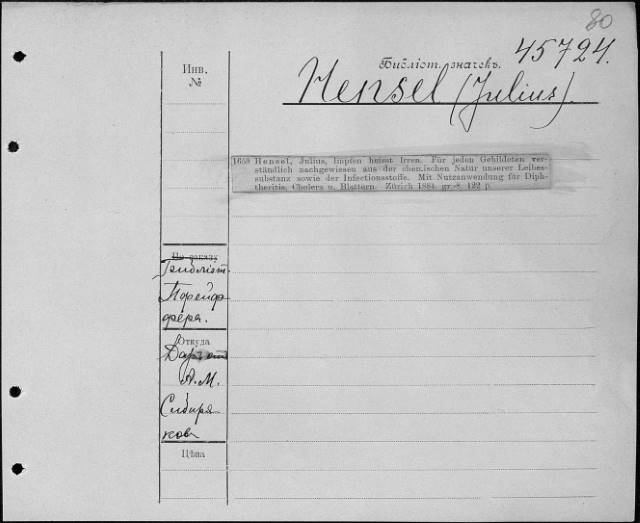 80
45724.
Инв.
№
Библіот. значекъ.
Hensel (Julius).
1659 Hensel, Julius, Impfen heisst Irren. Für jeden Gebildeten ver-
ständlich nachgewiesen aus der chemischen Natur unserer Leibes-
substanz sowie der Infectionsstoffe. Mit Nutzanwendung für Diph-
theritis, Cholera u. Blattern. Zürich 1884. gr.-8. 122 p.
По заказу
Библіот.
Пфейф
фера.
Откуда
Даръ отъ
А. М.
Сибиря
кова
Цѣна